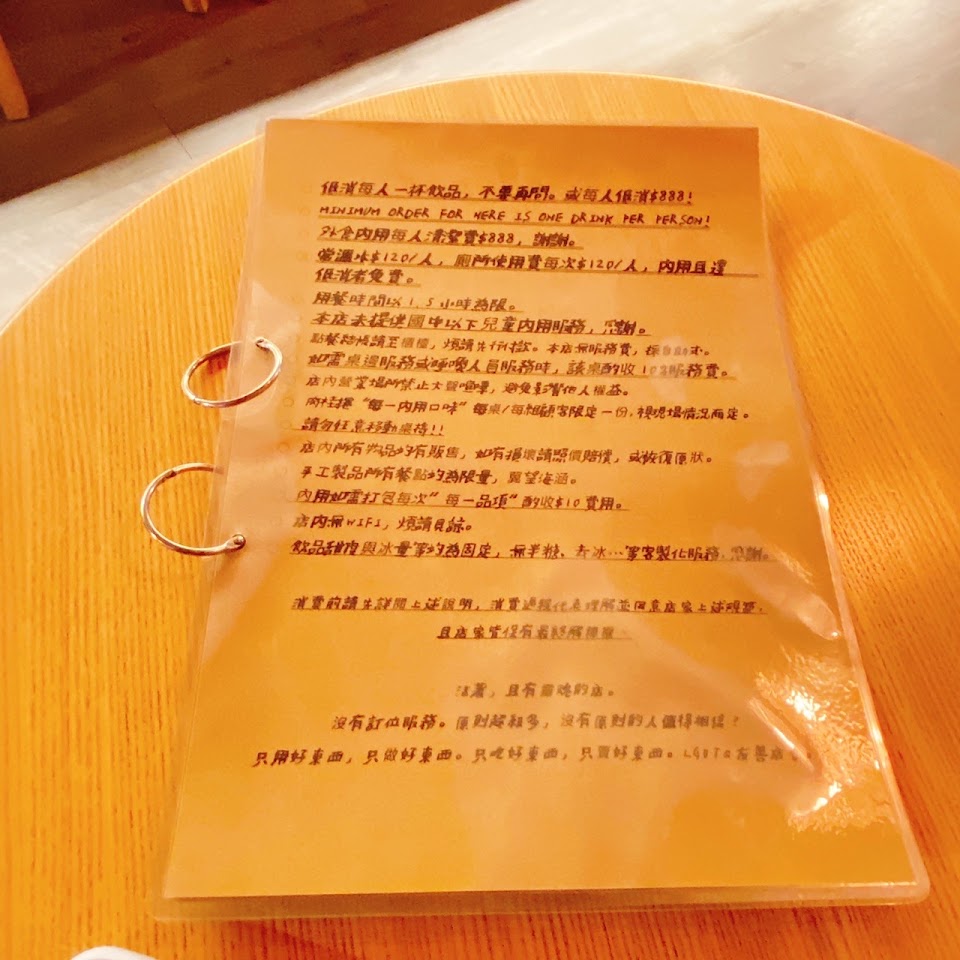 低消每人一杯飲品，不要再問。或每人低消$888!
MINIMUM ORDER FOR HERE IS ONE DRINK PER PERSON!
外食內用每人清潔費$888，謝謝。
常溫水$120/人，廁所使用費每次$120/人，內用且達
低消者免費。
用餐時間以1.5小時為限。
本店未提供國中以下兒童內用服務，感謝。
點餐結帳請至櫃檯，煩請先行付款。本店無服務費，採自助式。
如需桌邊服務或呼喚人員服務時，該桌酌收10%服務費。
店內營業場所禁止大聲喧嘩，避免影響他人權益。
肉桂捲"每一內用口味"每桌/每組顧客限定一份，視現場情況而定。
請勿任意移動桌椅!!
店內所有物品均有販售，如有損壞請照價賠償，或恢復原狀。
手工製品所有餐點均為限量，還望海涵。
內用如需打包每次"每一品項"酌收$10費用。
店內無WIFI，煩請見諒。
飲品甜度與冰量等均為固定，無半糖、去冰…等客製化服務，感謝。
消費前請先詳閱上述說明，消費過程代表理解並同意店家上述規範，
且店家皆保有最終解釋權。
活著，且有靈魂的店。
沒有訂位服務。原則超級多，沒有原則的人值得相信？
只用好東西，只做好東西。只吃好東西，只賣好東西。LGBTQ友善店